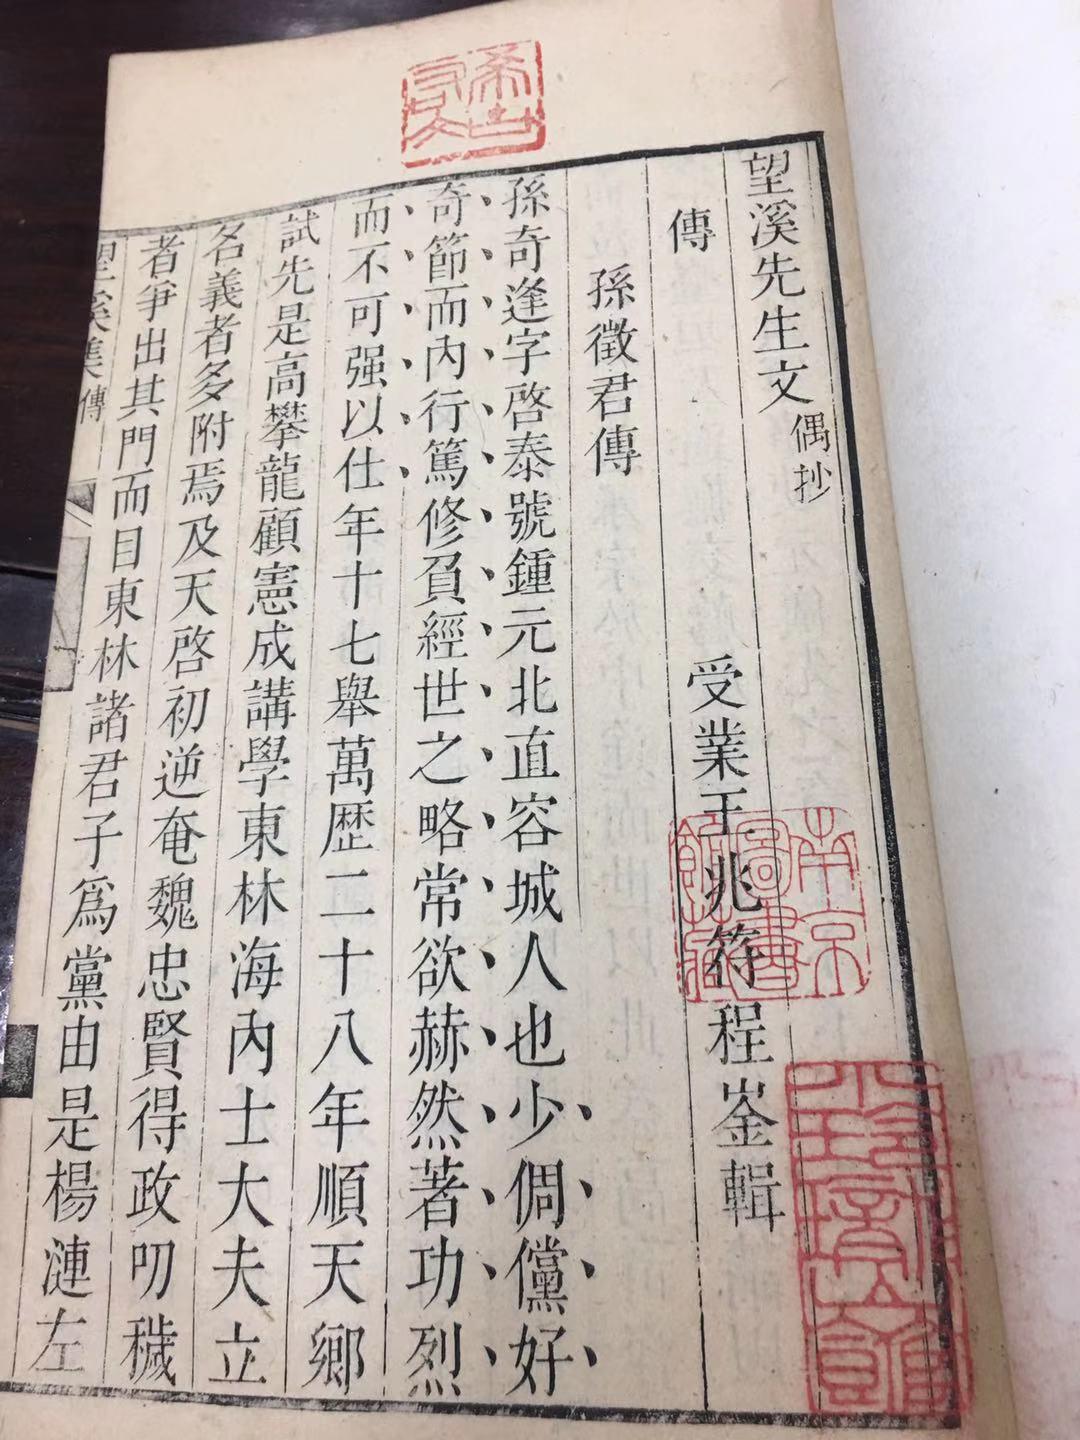 望溪先生文偶抄
傳
受業王兆符程崟輯
孫徵君傳
孫奇逢字啓泰號鍾元北直容城人也少倜儻好
奇節而內行篤修負經世之略常欲赫然著功烈
而不可强以仕年十七舉萬歷二十八年順天鄉
試先是高攀龍顧憲成講學東林海內士大夫立
名義者多附焉及天啓初逆奄魏忠賢得政叨穢
者爭出其門而目東林諸君子爲黨由是楊漣左
望溪集傳
南京圖書館藏